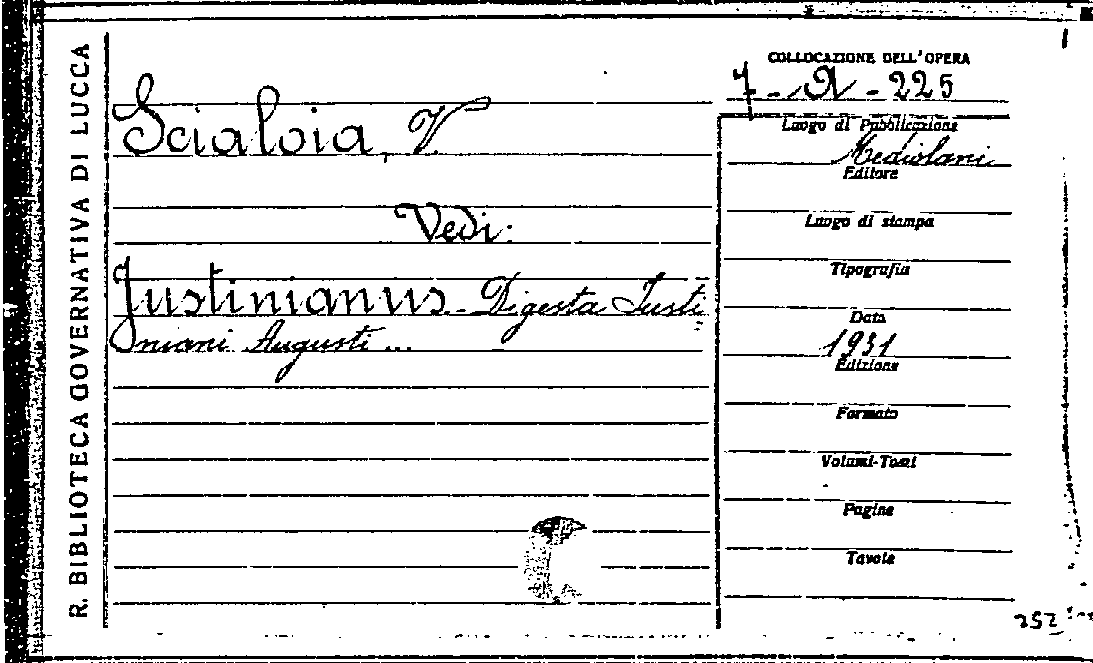 R. BIBLIOTECA GOVERNATIVA DI LUCCA
Scialoia, V
Vedi:
Justinianus - Digesta Iusti
niani Augusti ...
COLLOCAZIONE DELL'OPERA
225
Luogo di Pubblicazione
Mediolani
Editore
Luogo di stampa
Tipografia
Data
1931
Edizione
Formato
Volumi-Tomi
Pagine
Tavole
252